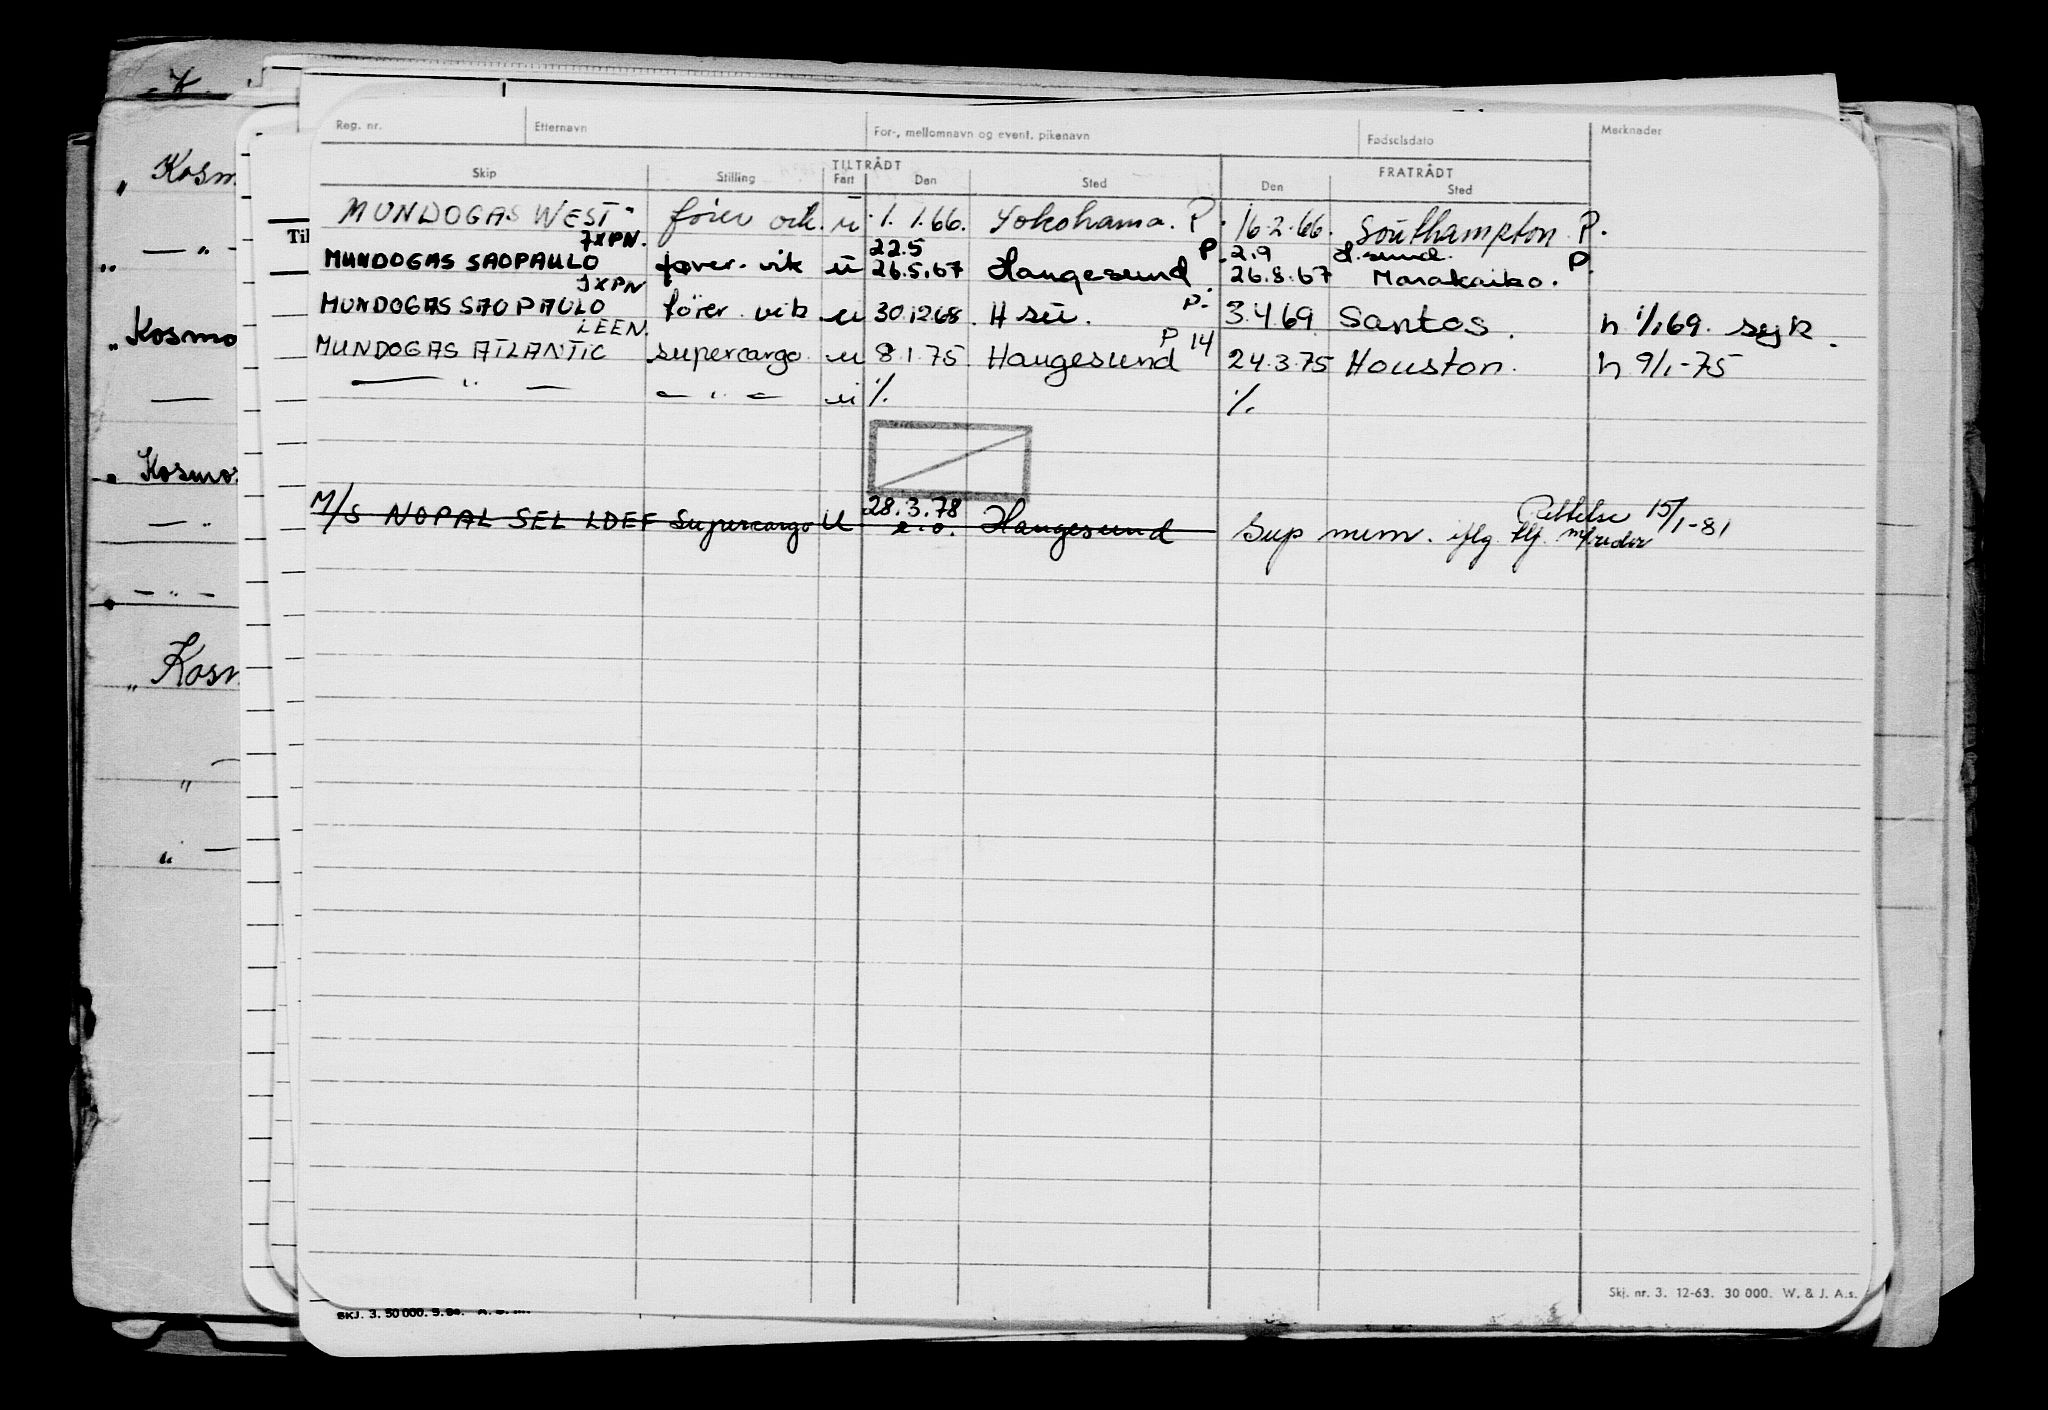 Reg. nr. Etternavn For-, mellomnavn og event. pikenavn Fødselsdato Merknader
TILTRÅDT FRATRÅDT
Skip Stilling Fart Den Sted Den Sted
MUNDOGAS WEST" fører vik. u 1.1.66. Yokohama. P. 16.2.66. Southampton P.
JXPN. 22.5 P. 2.9 H.sund. P.
MUNDOGAS SAOPAULO fører. vik u 26.5.67 Haugesund 26.8.67 Marakaibo.
JXPN P.
MUNDOGAS SAO PAULO fører vik u 30.12.68. H su. 3.4.69 Santos. h 1/1 69. syk.
LEEN. P 14
MUNDOGAS ATLANTIC supercargo u 8.1.75 Haugesund 24.3.75 Houston. h 9/1-75
— " — — " — u %. %.
28.3.78 Rettelse 15/1-81
M/S NOPAL SEL LDEF Supercargo U e.o. Haugesund Sup num. iflg. tlf. m/reder
Skj. nr. 3. 12-63. 30 000. W. & J. A.s.
SKJ. 3. 50 000.
K
" Kosm
" — " —
Til
" Kosmo
—
" Kosmo
— " —
— " —
" Kosm
" —
" —